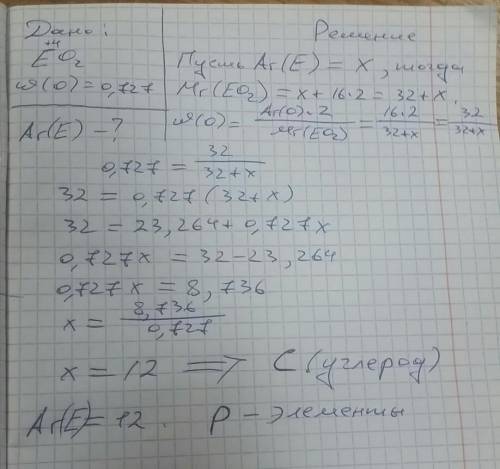 Дано:
+4
EO₂
ω(O) = 0,727
Ar(E) - ?
Решение
Пусть Ar(E) = x, тогда
Mr(EO₂) = x + 16·2 = 32 + x.
ω(O) = Ar(O)·2 / Mr(EO₂) = 16·2 / 32+x = 32 / 32+x
0,727 = 32 / 32+x
32 = 0,727 (32+x)
32 = 23,264 + 0,727x
0,727x = 32 - 23,264
0,727x = 8,736
x = 8,736 / 0,727
x = 12 ⟹ C (углерод)
Ar(E) = 12. p - элементы